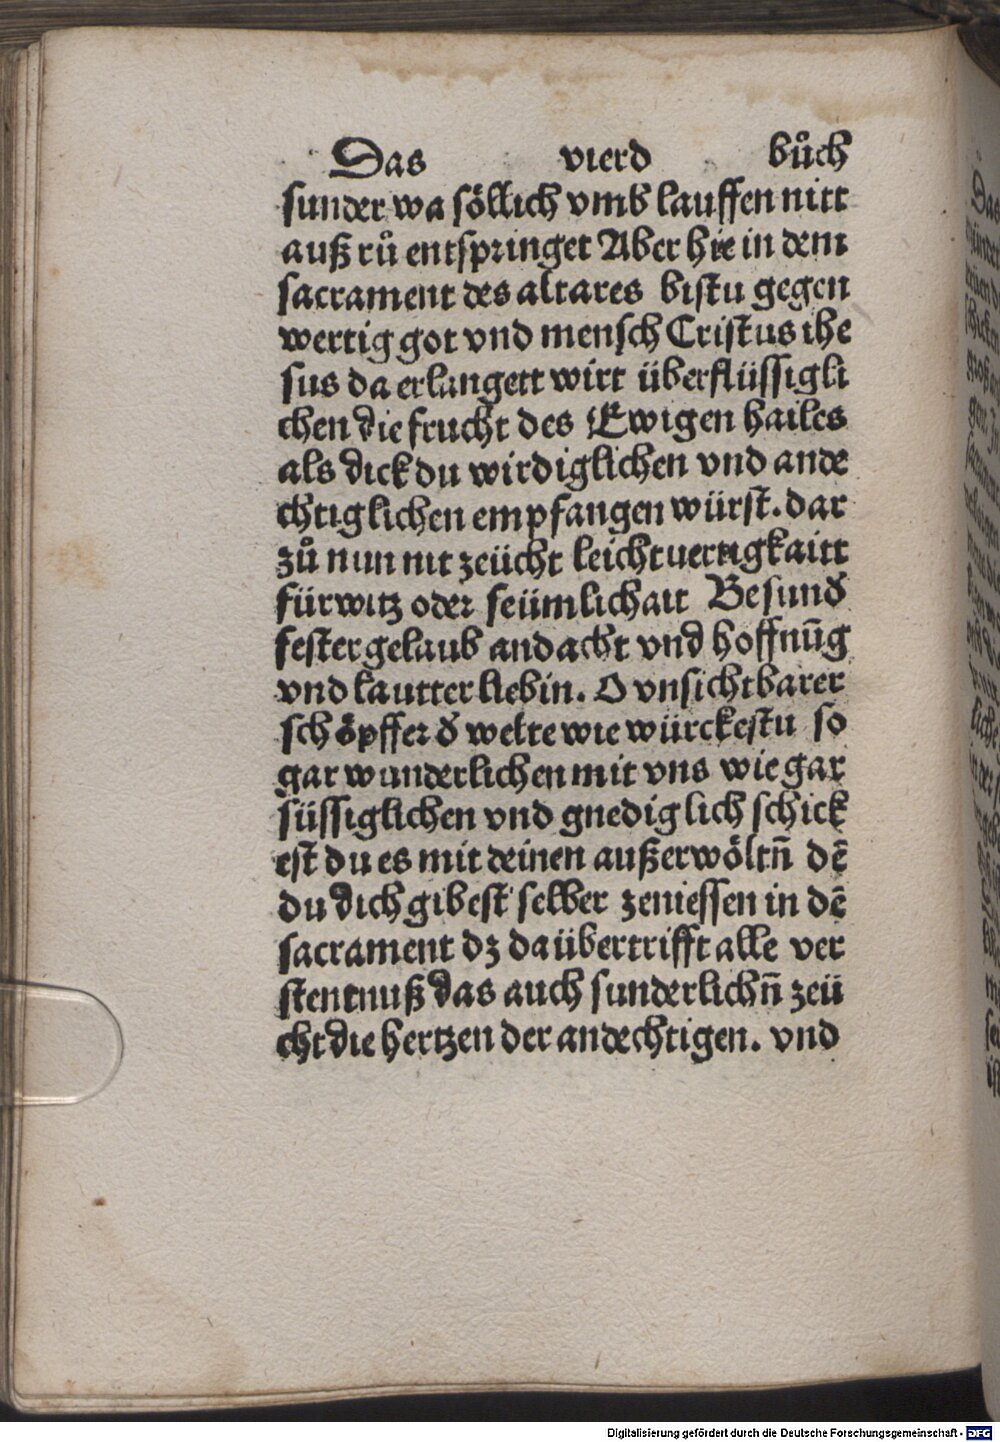 Das vierd bůch
sunder wa söllich vmb lauffen nitt
auß rů entspringet Aber hie in dem
sacrament des altares bistu gegen
wertig got vnd mensch Cristus ihe
sus da erlangett wirt überflüssigli
chen die frucht des Ewigen hailes
als dick du wirdiglichen vnd ande
chtiglichen empfangen würst. dar
zů nun nit zeücht leichtuertigkaitt
fürwitz oder seümlichait Besunđ
fester gelaub andacht vnd hoffnūg
vnd lautter liebin. O vnsichtbarer
schöpffer đ welte wie würckestu so
gar wunderlichen mit vns wie gar
süssiglichen vnd gnediglich schick
est du es mit deinen außerwöltn̄ dē
du dich gibest selber zeniessen in dē
sacrament dz da übertrifft alle ver
stentnuß das auch sunderlichn̄ zeü
cht die hertzen der andechtigen. vnd
Digitalisierung gefördert durch die Deutsche Forschungsgemeinschaft - DFG